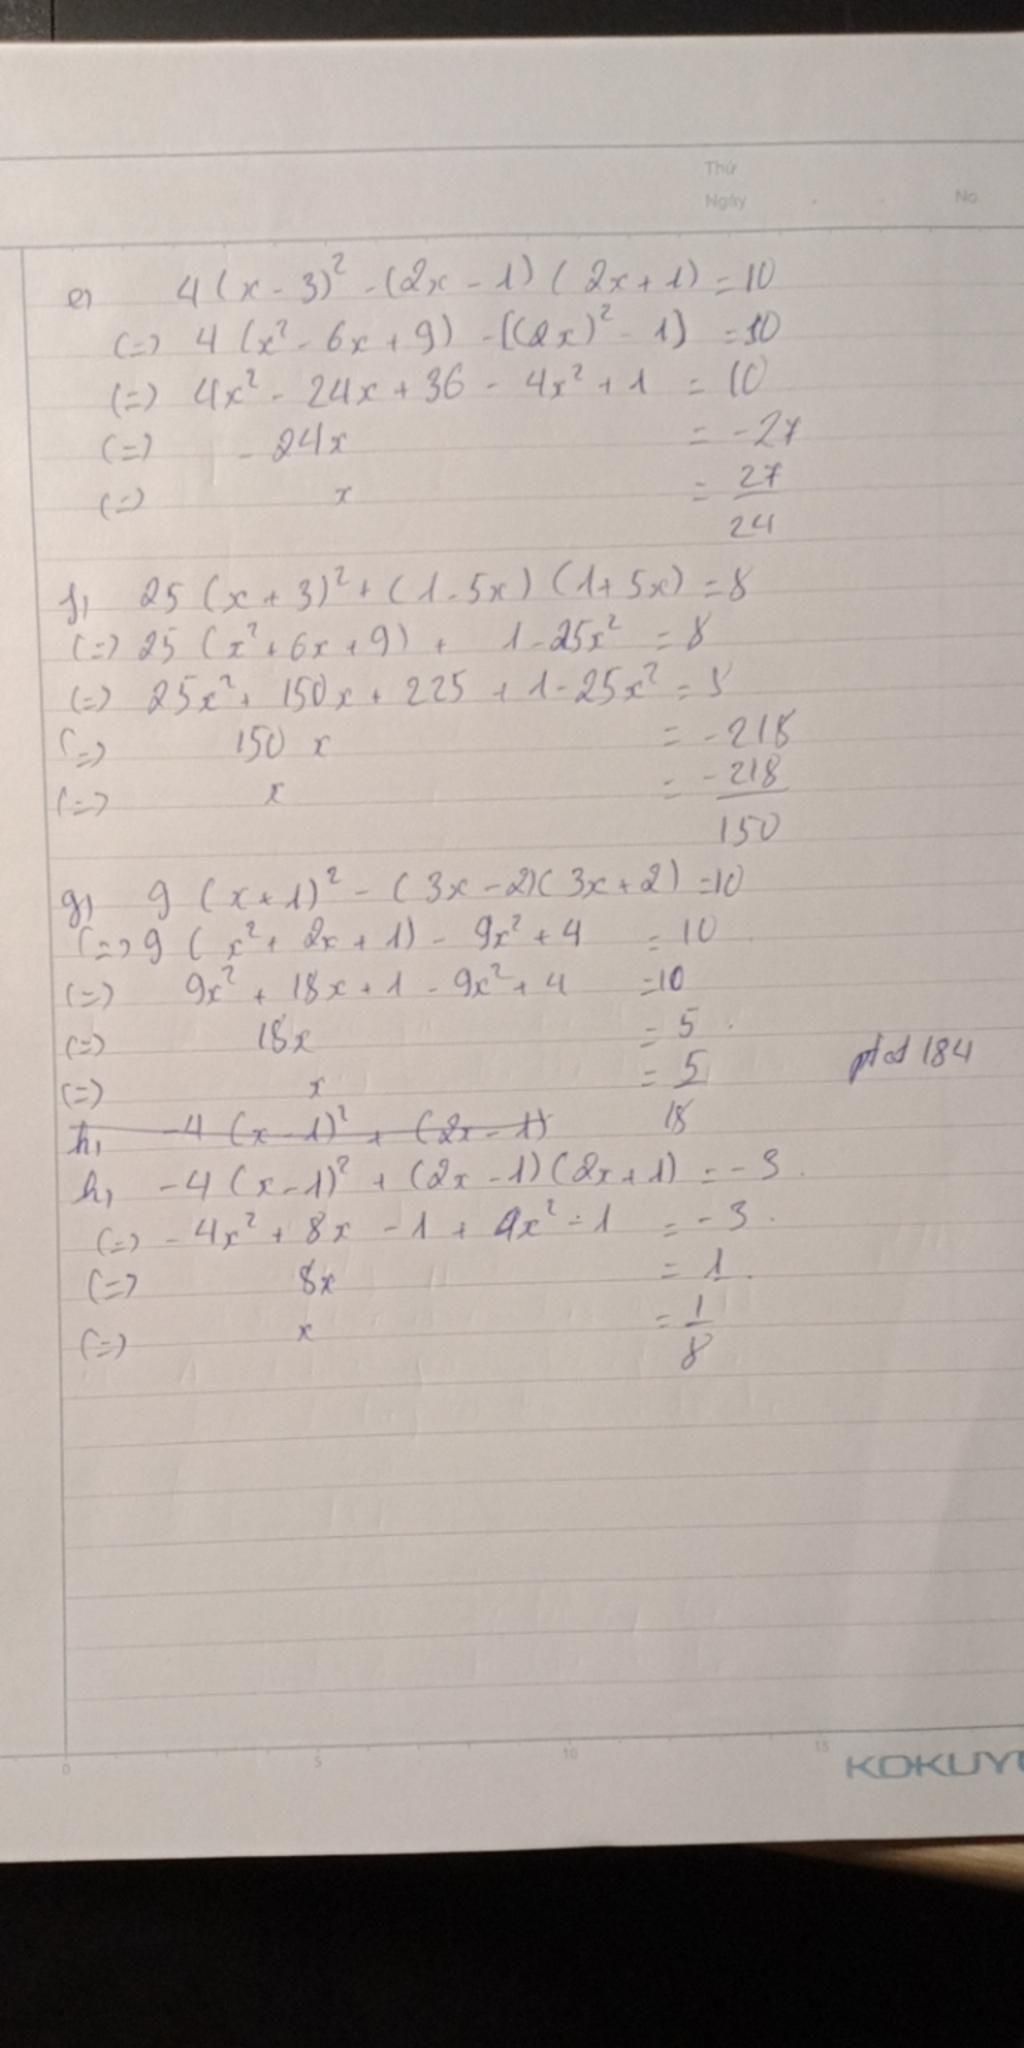 Thứ
Ngày No
e, 4(x - 3)² - (2x - 1)(2x + 1) = 10
(=) 4(x² - 6x + 9) - [(2x)² - 1] = 10
(=) 4x² - 24x + 36 - 4x² + 1 = 10
(=) - 24x = -27
(=) x = 27/24
f, 25(x + 3)² + (1 - 5x)(1 + 5x) = 8
(=) 25(x² + 6x + 9) + 1 - 25x² = 8
(=) 25x² + 150x + 225 + 1 - 25x² = 8
(=) 150x = -218
(=) x = -218/150
g, 9(x + 1)² - (3x - 2)(3x + 2) = 10
(=) 9(x² + 2x + 1) - 9x² + 4 = 10
(=) 9x² + 18x + 1 - 9x² + 4 = 10
(=) 18x = 5
(=) x = 5/18
184
h, -4(x - 1)² + (2x - 1)
h, -4(x - 1)² + (2x - 1)(2x + 1) = -3
(=) -4x² + 8x - 1 + 4x² - 1 = -3
(=) 8x = 1
(=) x = 1/8
0 5 10 15